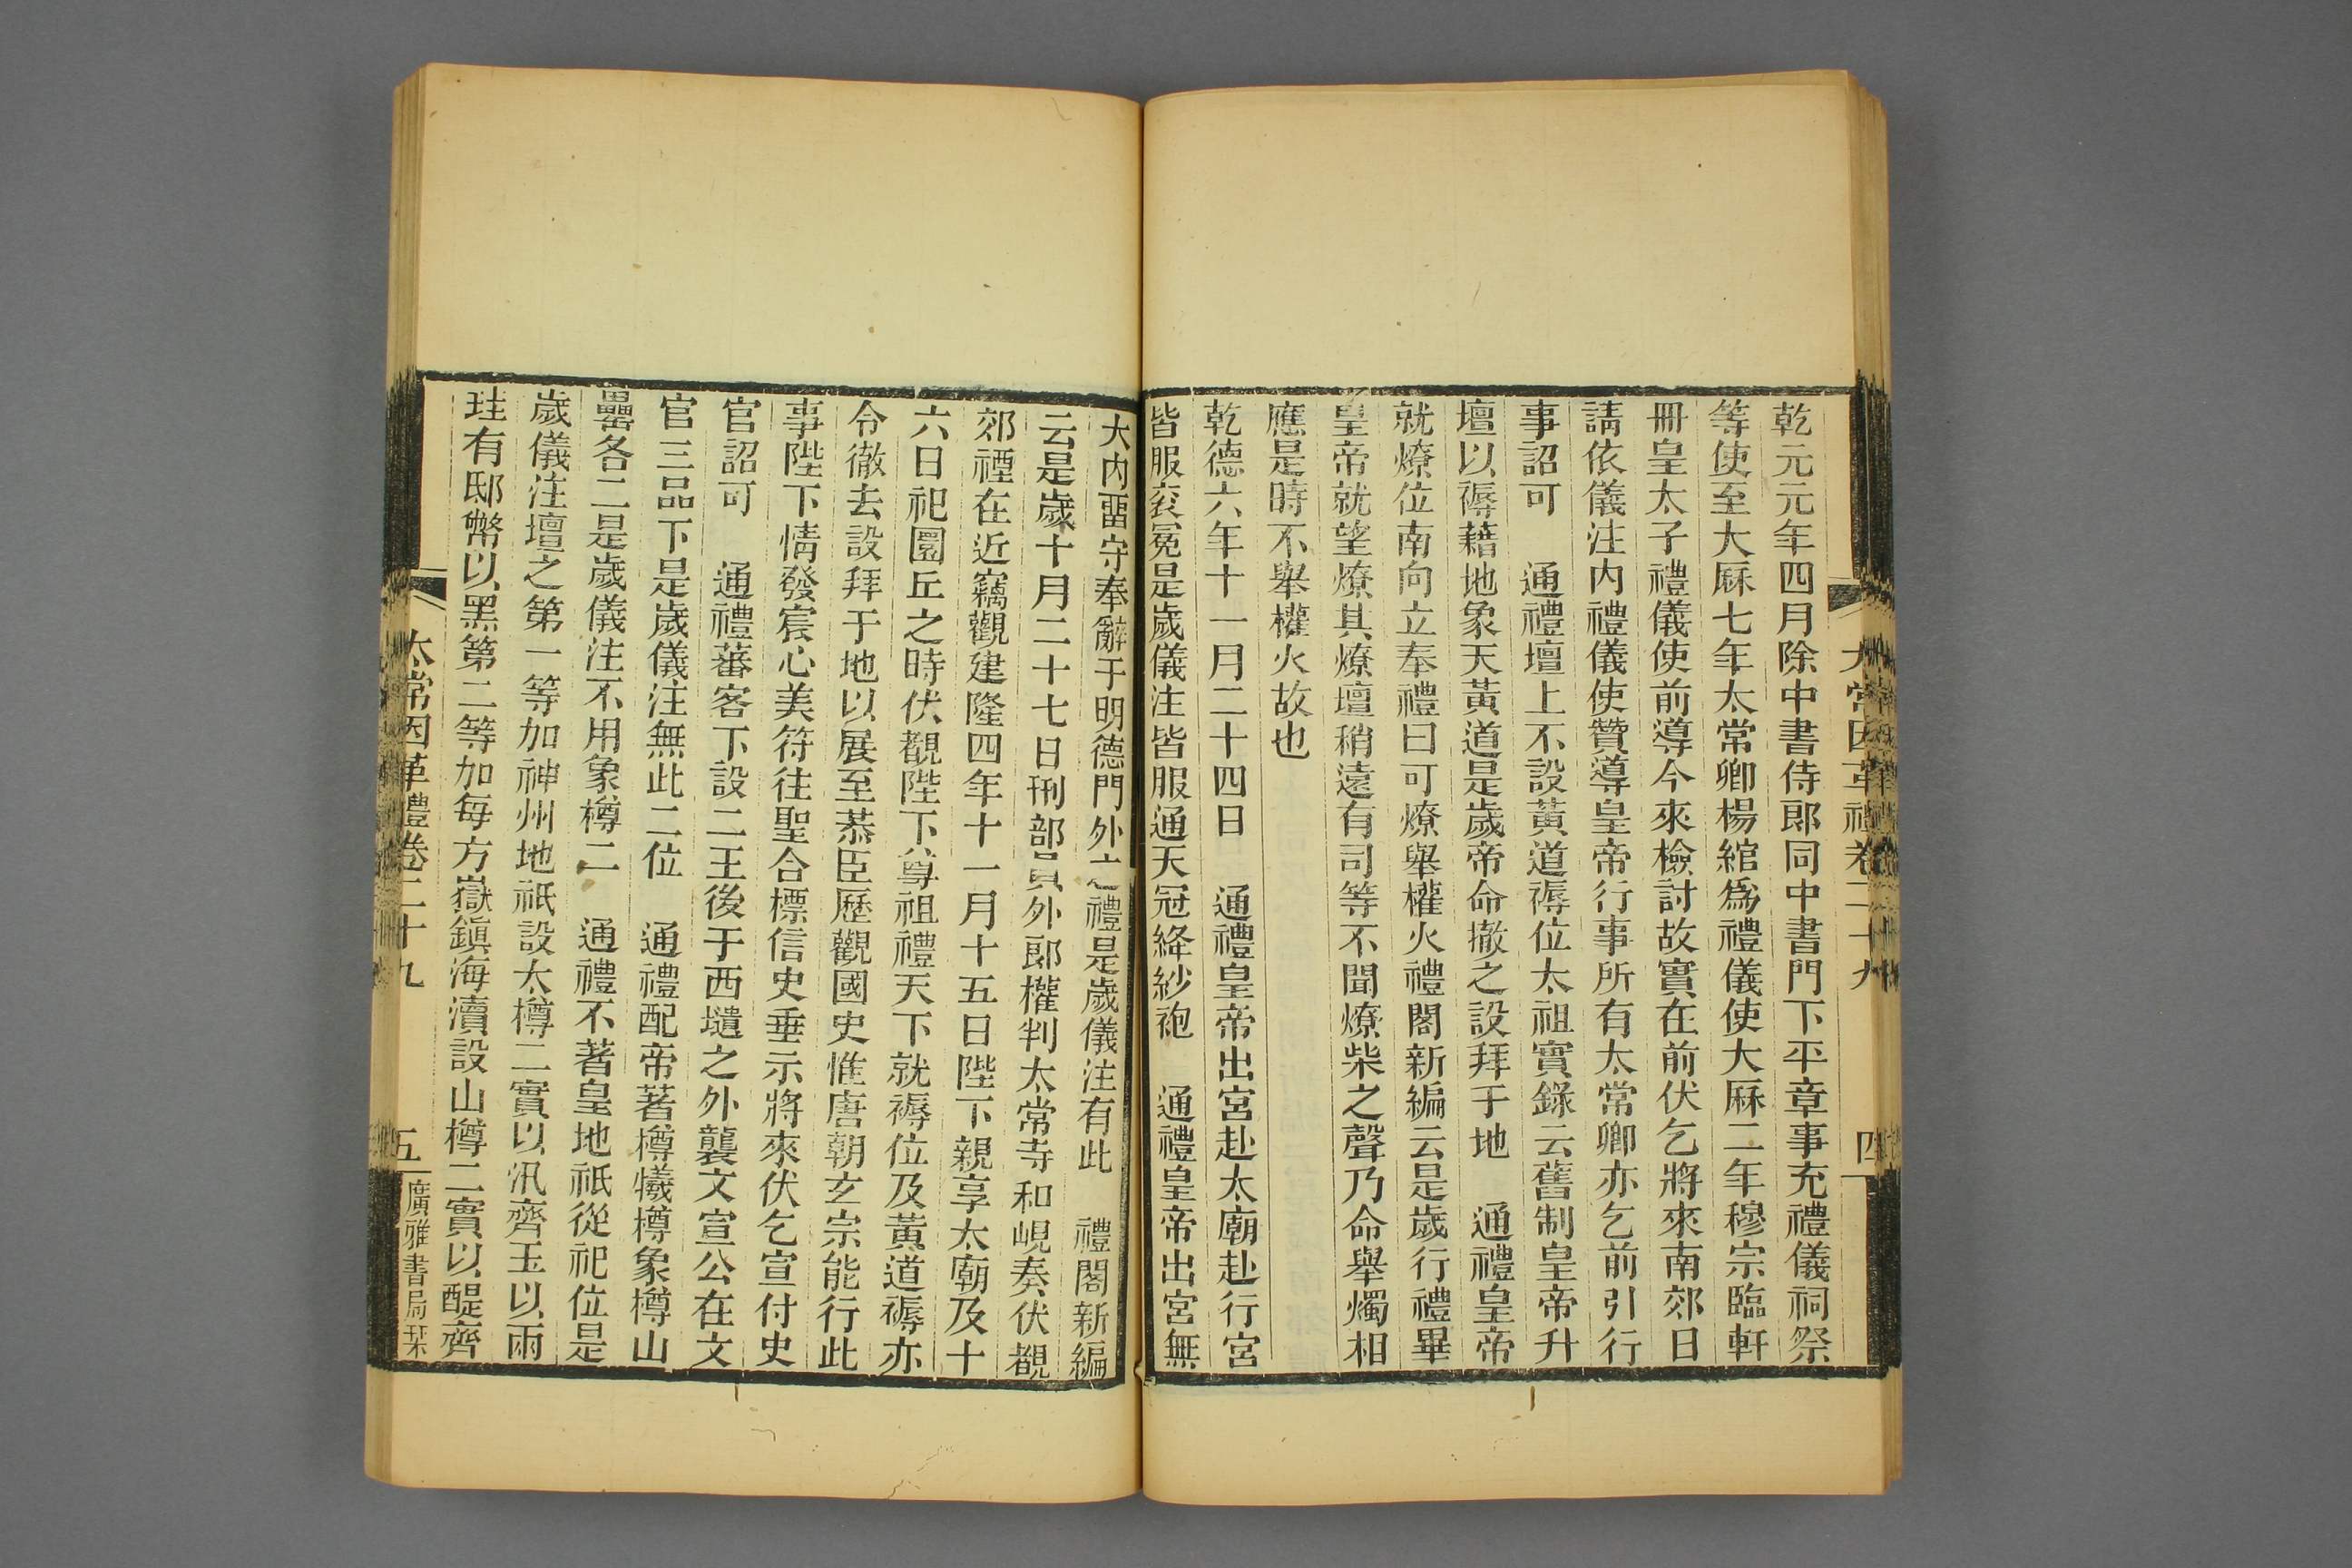 太常因革禮卷二十九
四
乾元元年四月除中書侍郎同中書門下平章事充禮儀祠祭
等使至大厤七年太常卿楊綰爲禮儀使大厤二年穆宗臨軒
冊皇太子禮儀使前導今來檢討故實在前伏乞將來南郊日
請依儀注內禮儀使贊導皇帝行事所有太常卿亦乞前引行
事詔可　通禮壇上不設黃道褥位太祖實錄云舊制皇帝升
壇以褥藉地象天黃道是歲帝命撤之設拜于地　通禮皇帝
就燎位南向立奉禮曰可燎舉權火禮閣新編云是歲行禮畢
皇帝就望燎其燎壇稍遠有司等不聞燎柴之聲乃命舉燭相
應是時不舉權火故也
乾德六年十一月二十四日　通禮皇帝出宮赴太廟赴行宮
皆服衮冕是歲儀注皆服通天冠絳紗袍　通禮皇帝出宮無
大內畱守奉辭于明德門外之禮是歲儀注有此　禮閣新編
云是歲十月二十七日刑部員外郎權判太常寺和峴奏伏覩
郊禋在近竊觀建隆四年十一月十五日陛下親享太廟及十
六日祀圜丘之時伏覩陛下尊祖禮天下就褥位及黃道褥亦
令徹去設拜于地以展至恭臣歷觀國史惟唐朝玄宗能行此
事陛下情發宸心美符往聖合標信史垂示將來伏乞宣付史
官詔可　通禮蕃客下設二王後于西壝之外襲文宣公在文
官三品下是歲儀注無此二位　通禮配帝著樽犧樽象樽山
罍各二是歲儀注不用象樽二　通禮不著皇地祇從祀位是
歲儀注壇之第一等加神州地祇設太樽二實以汎齊玉以兩
珪有邸幣以黑第二等加每方嶽鎭海瀆設山樽二實以醍齊
太常因革禮卷二十九
五
廣雅書局栞